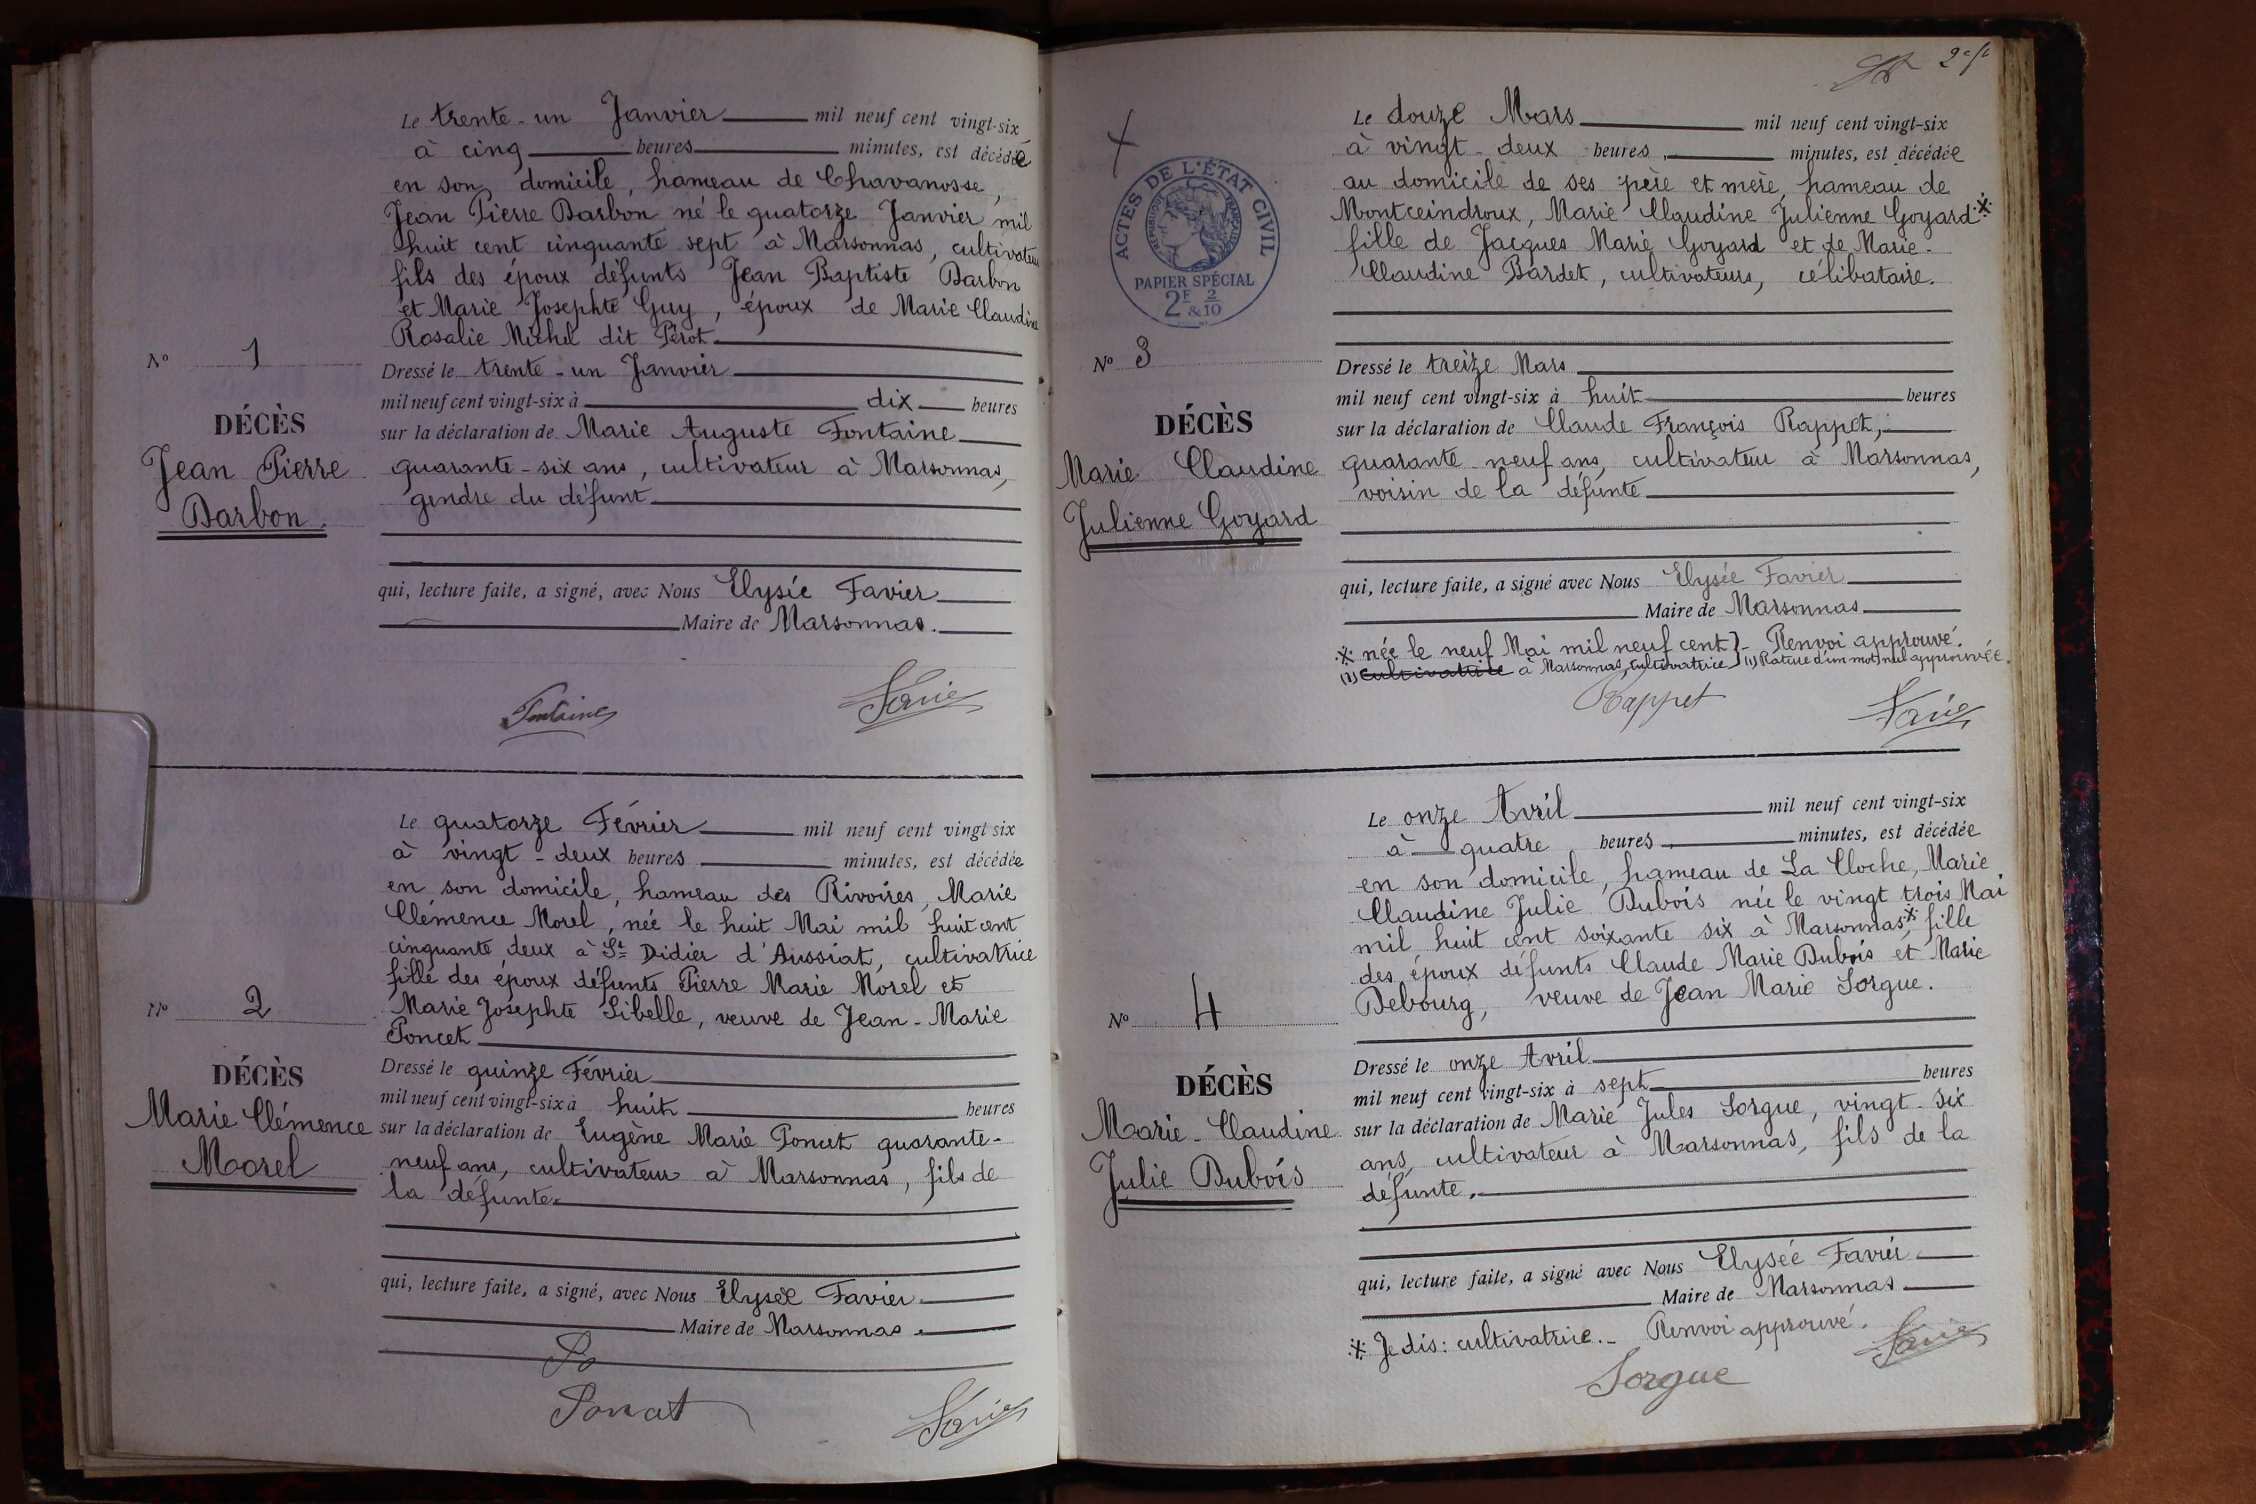 Le trente-un Janvier mil neuf cent vingt-six
à cinq heures minutes, est décédée
en son domicile, hameau de Chavanosse,
Jean Pierre Barbon né le quatorze Janvier mil
huit cent cinquante sept à Marsonnas, cultivateur
fils des époux défunts Jean Baptiste Barbon
et Marie Josephte Guy, époux de Marie Claudine
Rosalie Michel dit Pérot
N° 1
Dressé le trente-un Janvier
mil neuf cent vingt-six à dix heures
DÉCÈS
sur la déclaration de Marie Auguste Fontaine
Jean Pierre
quarante-six ans, cultivateur à Marsonnas,
gendre du défunt
Barbon.
qui, lecture faite, a signé, avec Nous Elysée Favier
Maire de Marsonnas.
Fontaine
Favier
Le quatorze Février mil neuf cent vingt six
à vingt-deux heures minutes, est décédée
en son domicile, hameau des Rivoires, Marie
Clémence Morel, née le huit Mai mil huit cent
cinquante deux à St Didier d'Aussiat, cultivatrice
fille des époux défunts Pierre Marie Morel et
N° 2
Marie Josephte Sibelle, veuve de Jean-Marie
Poncet
DÉCÈS
Dressé le quinze Février
mil neuf cent vingt-six à huit heures
Marie Clémence
sur la déclaration de Eugène Marie Poncet quarante-
Morel
neuf ans, cultivateur à Marsonnas, fils de
la défunte.
qui, lecture faite, a signé, avec Nous Elysée Favier
Maire de Marsonnas.
Po
Poncet
Favier
2e f
Le douze Mars mil neuf cent vingt-six
à vingt-deux heures, minutes, est décédée
au domicile de ses père et mère, hameau de
Montceindroux, Marie Claudine Julienne Goyard
fille de Jacques Marie Goyard et de Marie-
Claudine Bardet, cultivateurs, célibataire.
ACTES DE L'ÉTAT CIVIL
RÉPUBLIQUE FRANÇAISE
PAPIER SPÉCIAL
2F & 2/10
N° 3
Dressé le treize Mars
mil neuf cent vingt-six à huit heures
DÉCÈS
sur la déclaration de Claude François Rappet,
Marie Claudine
quarante neuf ans, cultivateur à Marsonnas,
voisin de la défunte
Julienne Goyard
qui, lecture faite, a signé avec Nous Elysée Favier
Maire de Marsonnas
née le neuf Mai mil neuf cent}- Renvoi approuvé.
(1) cultivatrice à Marsonnas, cultivatrice} (1) Rature d'un mot nul approuvée.
Rappet
Favier
Le onze Avril mil neuf cent vingt-six
à quatre heures minutes, est décédée
en son domicile, hameau de La Cloche, Marie
Claudine Julie Dubois née le vingt trois Mai
mil huit cent soixante six à Marsonnas, fille
des époux défunts Claude Marie Dubois et Marie
Debourg, veuve de Jean Marie Sorgue.
N° 4
Dressé le onze Avril
DÉCÈS
mil neuf cent vingt-six à sept heures
Marie-Claudine
sur la déclaration de Marie Jules Sorgue, vingt-six
ans, cultivateur à Marsonnas, fils de la
Julie Dubois
défunte.
qui, lecture faite, a signé avec Nous Elysée Favier
Maire de Marsonnas
Je dis: cultivatrice.- Renvoi approuvé.
Sorgue
Favier